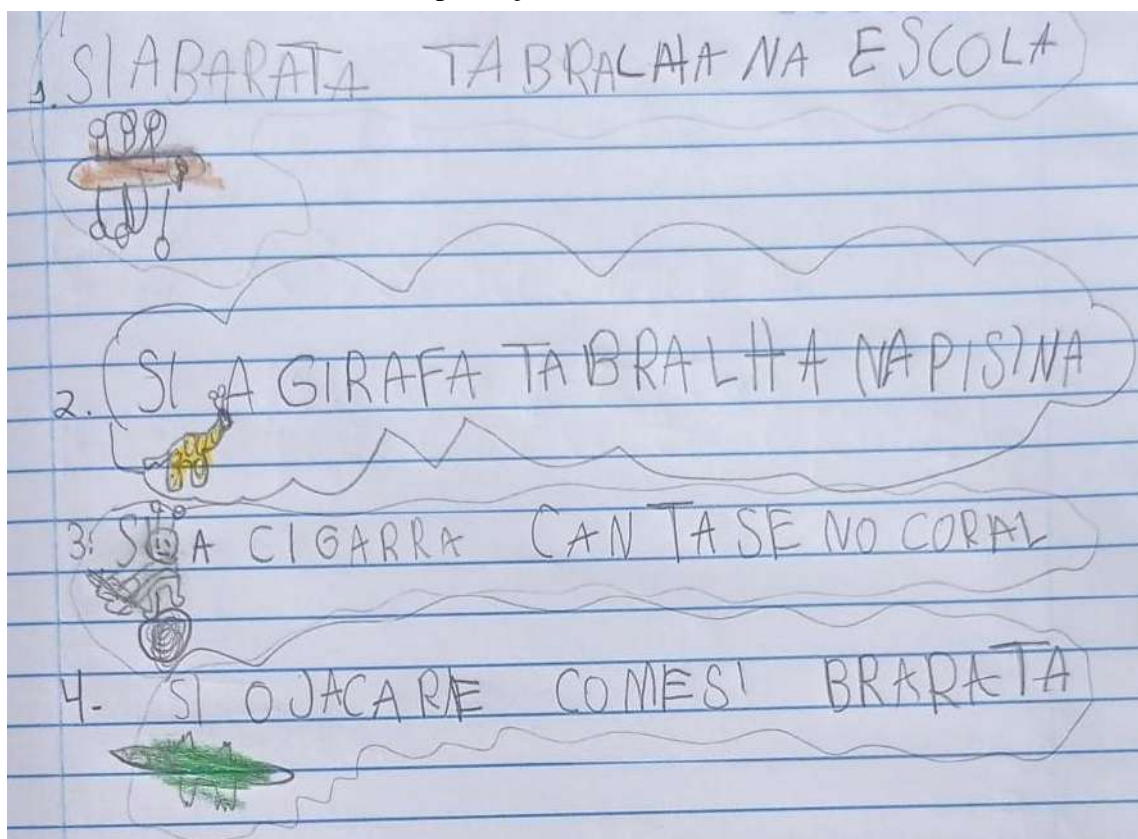 1. SI A BARATA TABRALHA NA ESCOLA
2. SI A GIRAFA TABRALHA NA PISINA
3. SI A CIGARRA CANTASE NO CORAL
4- SI O JACARE COMESI BRARATA